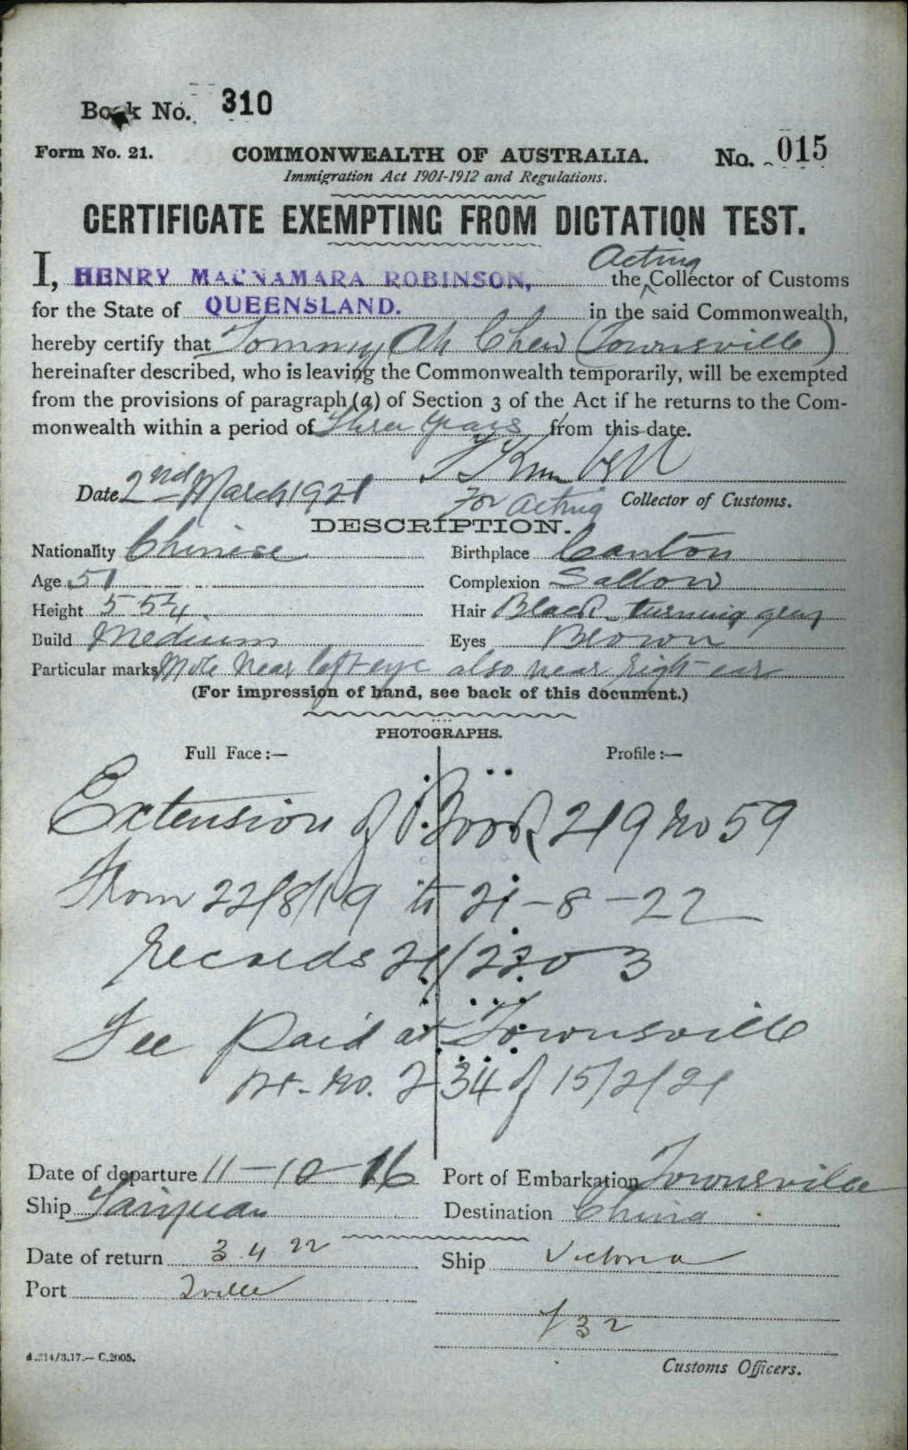 Book No. 310
Form No. 21. COMMONWEALTH OF AUSTRALIA. No. 015
Immigration Act 1901-1912 and Regulations.
CERTIFICATE EXEMPTING FROM DICTATION TEST.
I, HENRY MACNAMARA ROBINSON, the Acting Collector of Customs
for the State of QUEENSLAND. in the said Commonwealth,
hereby certify that Tommy Ah Chew (Townsville)
hereinafter described, who is leaving the Commonwealth temporarily, will be exempted
from the provisions of paragraph (a) of Section 3 of the Act if he returns to the Com-
monwealth within a period of Three years from this date.
Date 2nd March 1921 For Acting Collector of Customs.
DESCRIPTION.
Nationality Chinese Birthplace Canton
Age 51 Complexion Sallow
Height 5 5¾ Hair Black turning grey
Build Medium Eyes Brown
Particular marks Mole near left eye also near right ear
(For impression of hand, see back of this document.)
PHOTOGRAPHS.
Full Face:— Profile:—
Extension of Book 219 No 59
From 22/8/19 to 21-8-22
Records 21/2203
Fee Paid at Townsville
No. 234 of 15/2/21
Date of departure 11-10-16 Port of Embarkation Townsville
Ship Taiyuan Destination China
Date of return 3 4 22 Ship Victoria
Port Tville
Customs Officers.